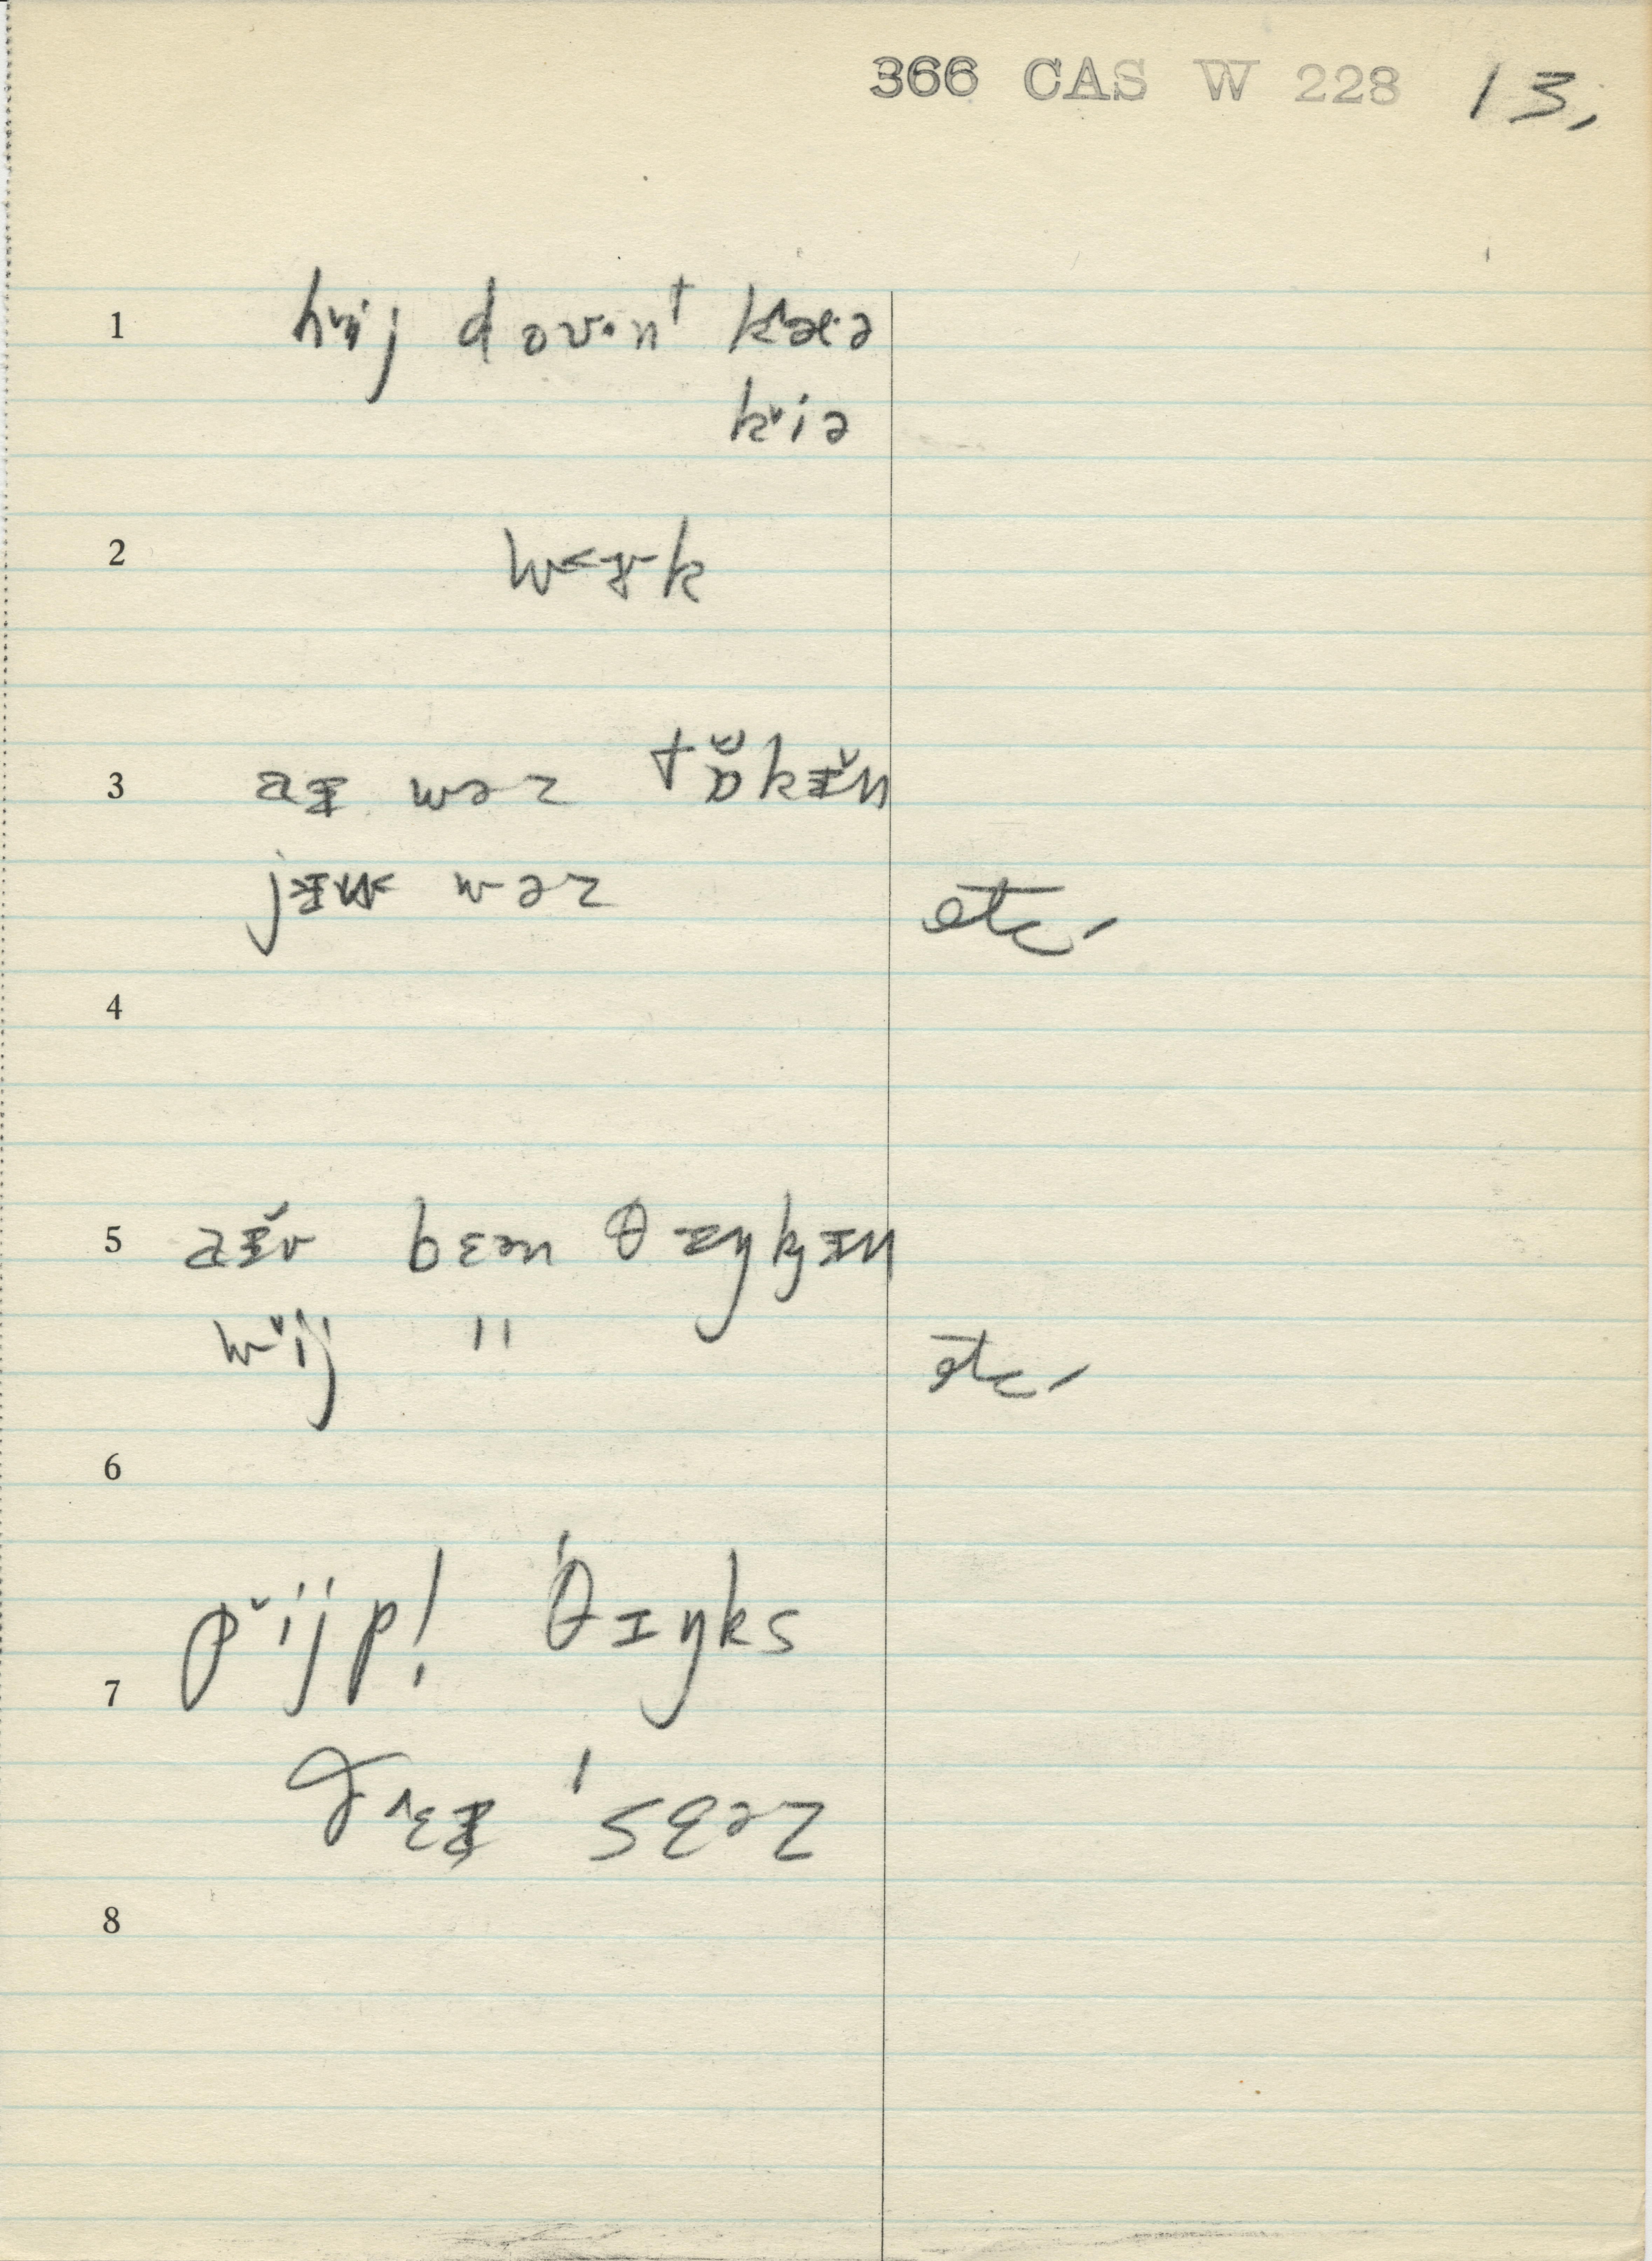 366 CAS W 228 13,
1 hɪ̌ij doʊ·nt kæ·ə
kˇiə
2 wɤk
3 aɪ wəz tɒ̆kɪ̆n
jɪu wəz etc.
4
5 aɪ̆v bɛən θæŋkɪn
wˇij " etc.
6
pˇijp! 'θɪŋks
7
ðɛɪ 'sɛəz
8